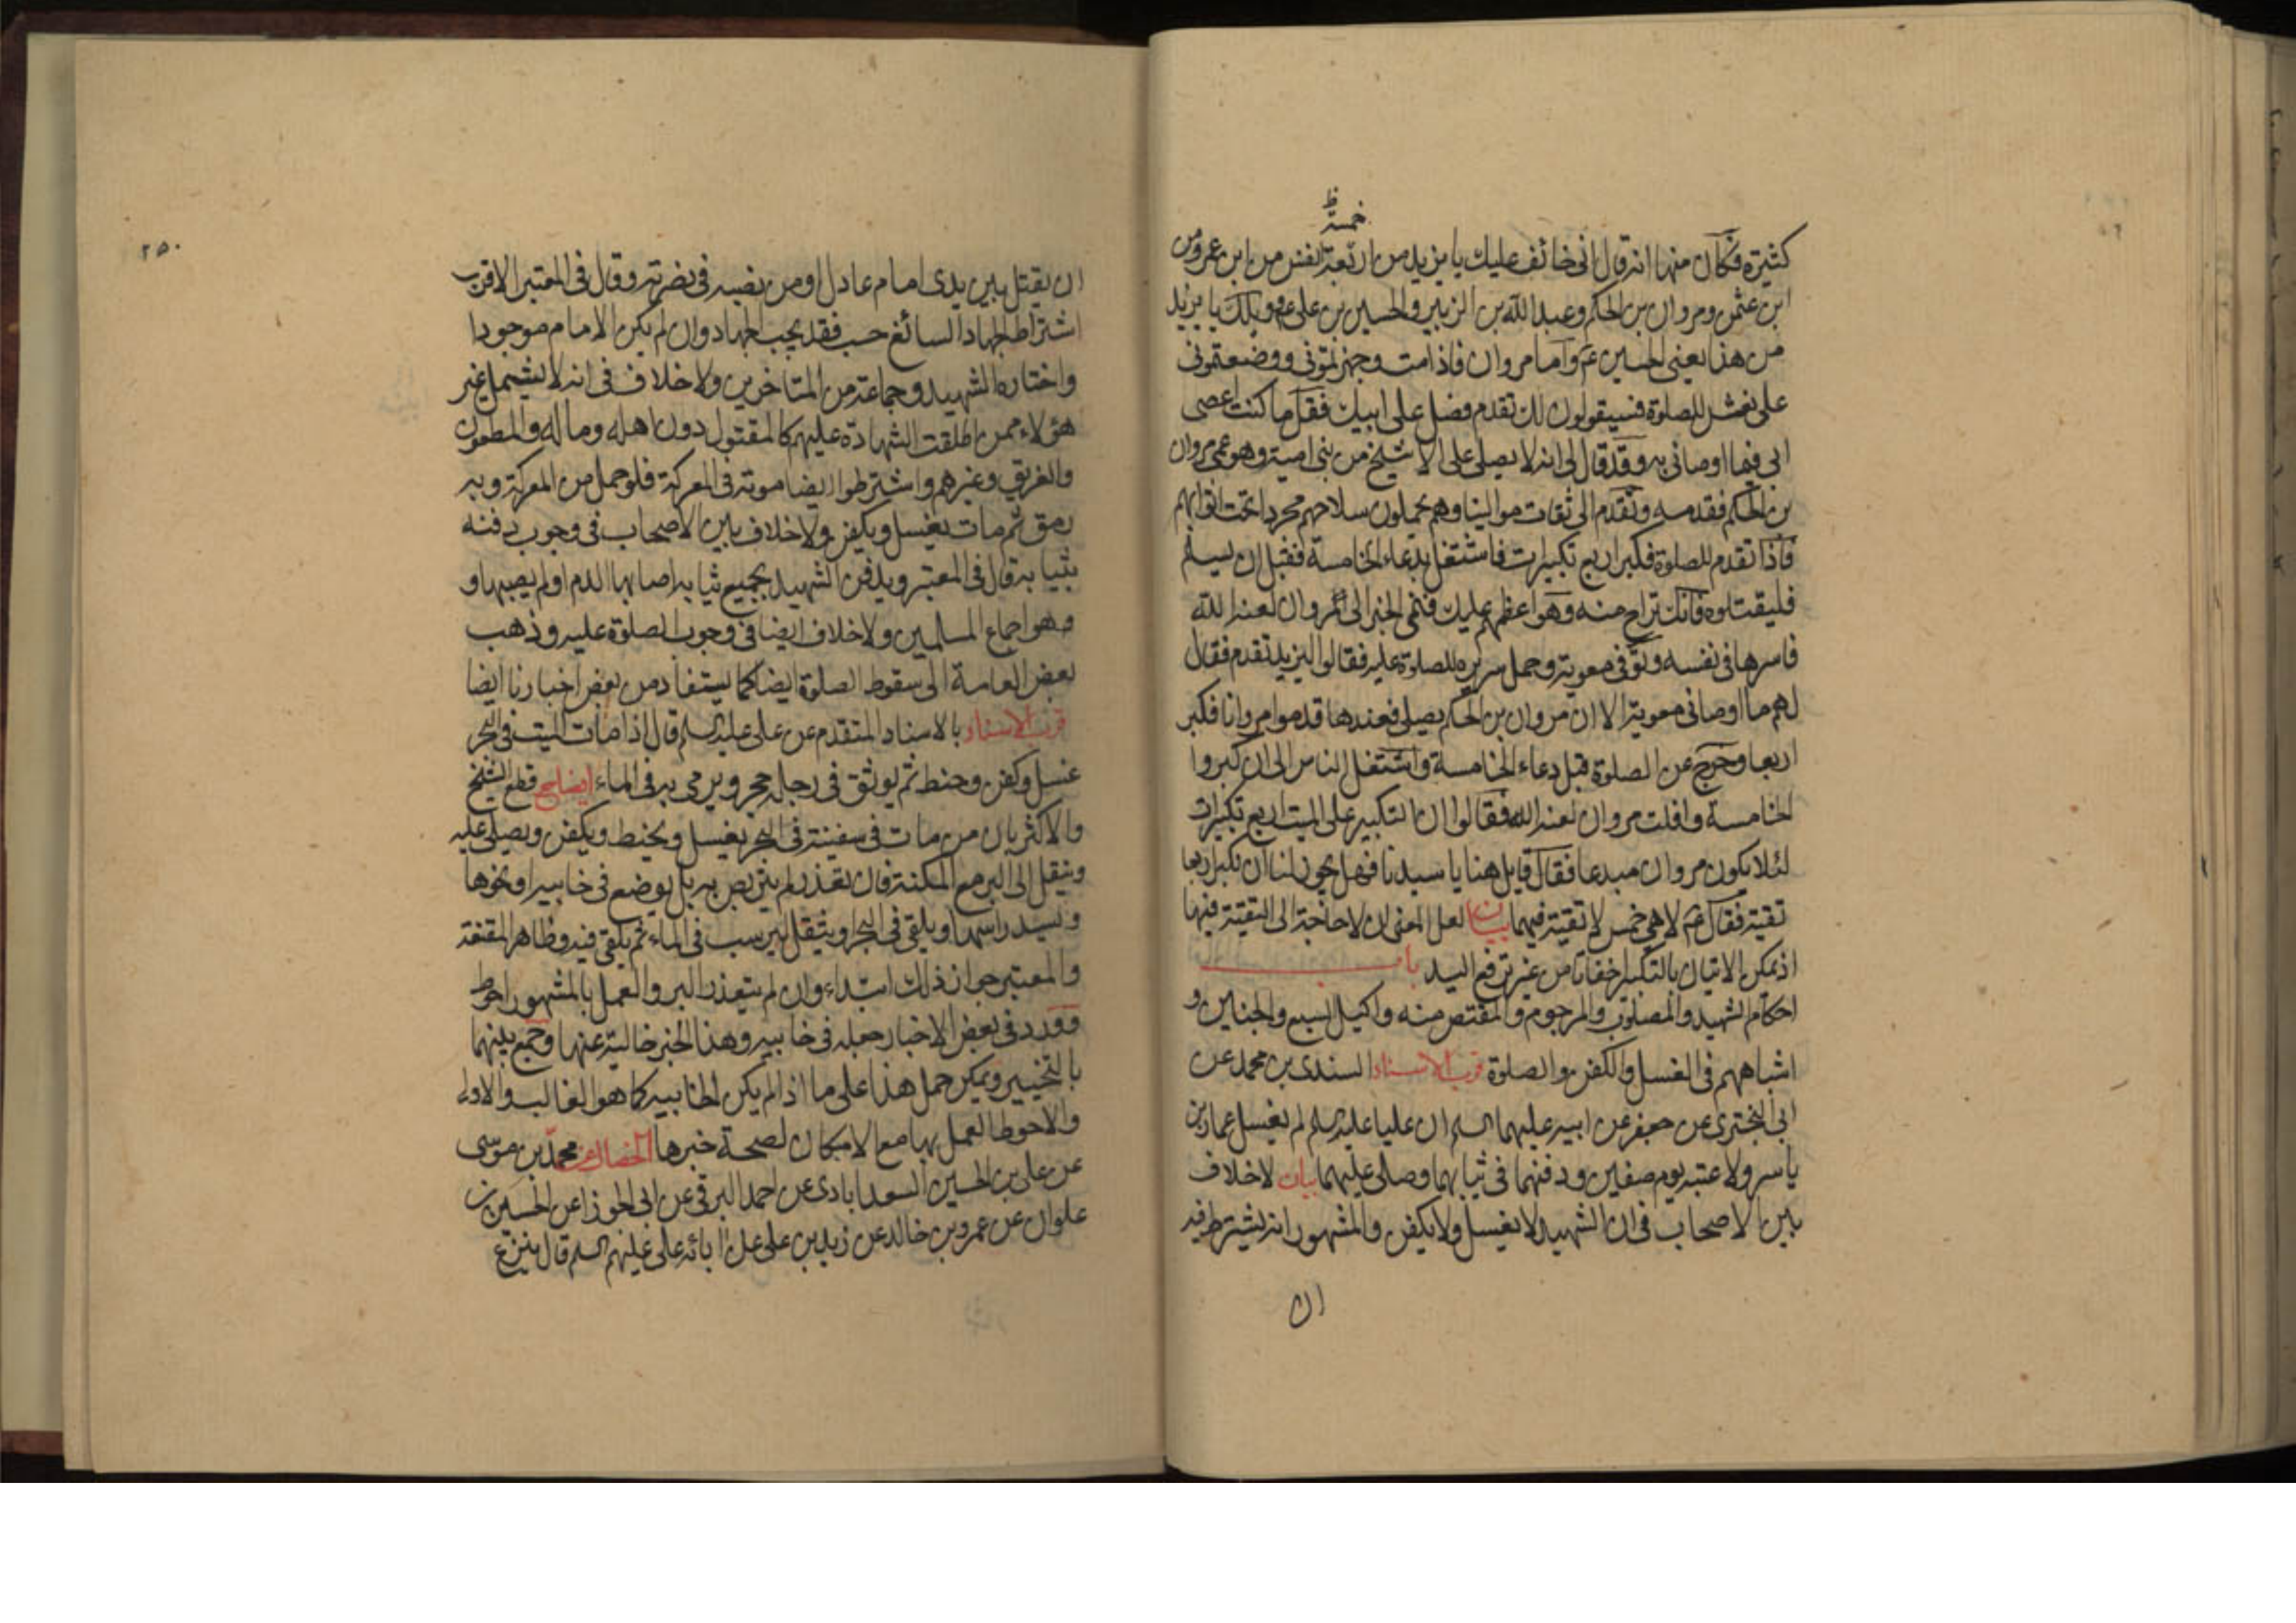 خمسة ظ
كثيرة فكان منها انه قال انى خائف عليك يا يزيد من اربعة نفس من ابن عمر ومن
ابن عثمن ومروان بن الحكم وعبد الله بن الزبير والحسين بن على ع وويلك يا يزيد
من هذا يعنى الحسين ع واما مروان فاذا مت وجهزتمونى ووضعتمونى
على نعشى للصلوة فسيقولون لك تقدم فصل على ابيك فقل ما كنت اعصى
ابى فيما اوصانى به وقد قال لى انه لا يصلى على الا شيخ من بنى امية وهو عمى مروان
بن الحكم فقدمه وتقدم الى ثقات موالينا وهم يحملون سلاحهم مجردا تحت اثوابهم
فاذا تقدم للصلوة فكبر اربع تكبيرات فاشتغل بدعاء الخامسة فقبل ان يسلم
فليقتلوه فانك تراح منه وهو اعظمهم عليك فنمى الخبر الى مروان لعنه الله
فاسرها فى نفسه وتوفى معوية وحمل سريره للصلوة عليه فقالوا ليزيد تقدم فقال
لهم ما اوصانى معوية الا ان مروان بن الحكم يصلى فعندها قدموا مروانا فكبر
اربعا وخرج عن الصلوة قبل دعاء الخامسة واشتغل الناس الى ان كبروا
الخامسة وافلت مروان لعنه الله فقالوا ان التكبير على الميت اربع تكبيرات
لئلا يكون مروان مبدعا فقال قايل هنا يا سيدنا فهل يجوز لنا ان نكبر اربعا
تقية فقال ع لا هى خمس لا تقية فيها بيان لعل المعنى ان لا حاجة الى التقية فيها
اذ يمكن الاتيان بالتكبير اخفاتا من غير رفع اليد باب
احكام الشهيد والمصلوب والمرجوم والمقتص منه واكيل السبع والجنين و
اشباههم فى الغسل والكفن والصلوة قرب الاسناد السندى بن محمد عن
ابى البخترى عن جعفر عن ابيه عليهما السلم ان عليا عليه السلم لم يغسل عمار بن
ياسر ولا عتبة يوم صفين ودفنهما فى ثيابهما وصلى عليهما بيان لا خلاف
بين الاصحاب فى ان الشهيد لا يغسل ولا يكفن والمشهور انه يشترط فيه
ان
٢٥٠
ان يقتل بين يدى امام عادل او من نصبه فى نصرته وقال فى المعتبر الاقرب
اشتراط الجهاد السائغ حسب فقد يجب الجهاد وان لم يكن الامام موجودا
واختاره الشهيد وجماعة من المتاخرين ولا خلاف فى انه لا يشمل غير
هؤلاء ممن اطلقت الشهادة عليهم كالمقتول دون اهله وماله والمطعون
والغريق وغيرهم واشترطوا ايضا موته فى المعركة فلو حمل من المعركة وبه
رمق ثم مات يغسل ويكفن ولا خلاف بين الاصحاب فى وجوب دفنه
بثيابه قال فى المعتبر ويدفن الشهيد بجميع ثيابه اصابها الدم او لم يصبها و
وهو اجماع المسلمين ولا خلاف ايضا فى وجوب الصلوة عليه وذهب
بعض العامة الى سقوط الصلوة ايضا كما يستفاد من بعض اخبارنا ايضا
قرب الاسناد بالاسناد المتقدم عن على عليه السلم قال اذا مات الميت فى البحر
غسل وكفن وحنط ثم يوثق فى رجليه حجر ويرمى به فى الماء ايضاح قطع الشيخ
والاكثر بان من مات فى سفينة فى البحر يغسل ويحنط ويكفن ويصلى عليه
وينقل الى البر مع المكنة فان تعذر لم يتربص به بل يوضع فى خابية او نحوها
ويسد راسها ويلقى فى البحر او يثقل ليرسب فى الماء ثم يلقى فيه وظاهر المقنعة
والمعتبر جواز ذلك ابتداء وان لم يتعذر البر والعمل بالمشهور احوط
وورد فى بعض الاخبار جعله فى خابية وهذا الخبر خالية عنها وجمع بينهما
بالتخيير ويمكن حمل هذا على ما اذا لم يكن الخابية كما هو الغالب والاولى
والاحوط العمل بها مع الامكان لصحة خبرها الخصال عن محمد بن موسى
عن على بن الحسين السعدابادى عن احمد البرقى عن ابى الجوزا عن الحسين بن
علوان عن عمرو بن خالد عن زيد بن على عن ابائه على عليهم السلم قال ينزع